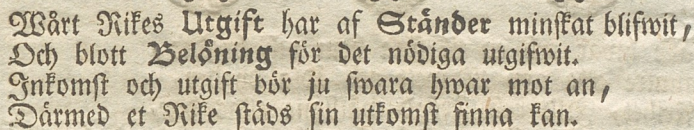 Wårt Rikes Utgift har af Ständer minskat blifwit,
Och blott Belöning för det nödiga utgifwit.
Inkomst och utgift bör ju swara hwar mot an,
Därmed et Rike städs sin utkomst finna kan.